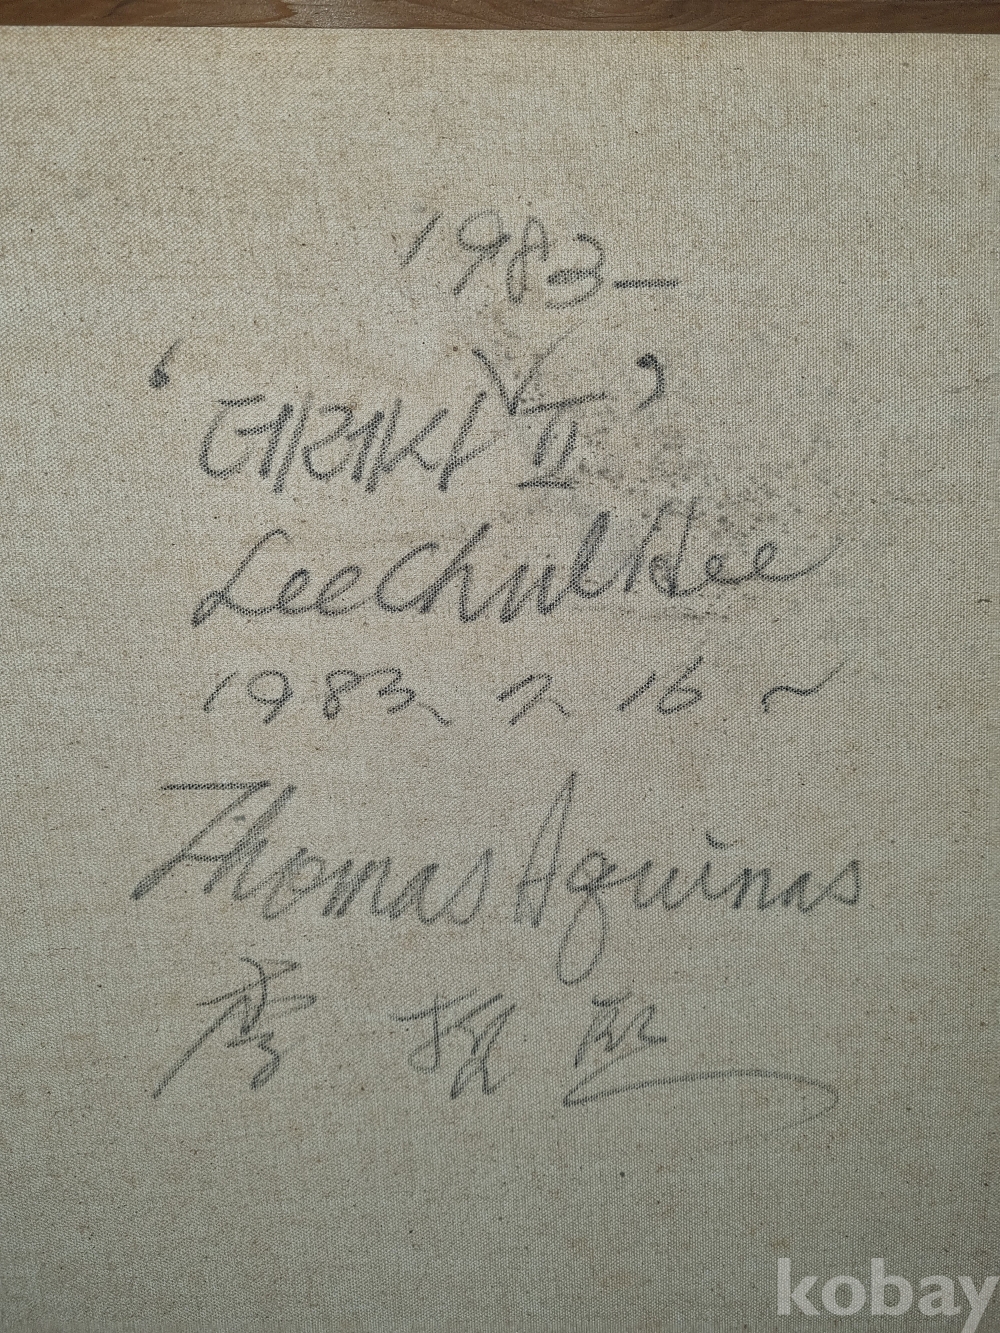 1983-
‘데레사 Ⅱ’
Lee Chul Hee
1983. 2. 16 ~
Thomas Aquinas
李 哲 熙
kobay